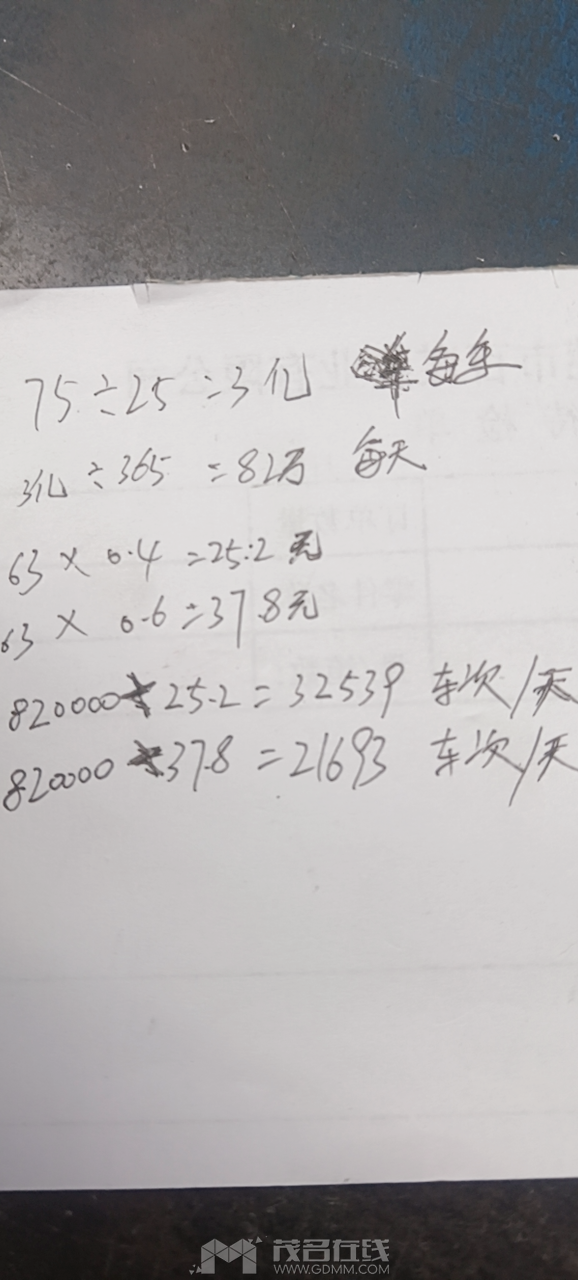 75÷25=3亿 每年
3亿÷365=82万 每天
63×0.4=25.2元
63×0.6=37.8元
820000÷25.2=32539 车次/天
820000÷37.8=21693 车次/天
茂名在线
WWW.GDMM.COM